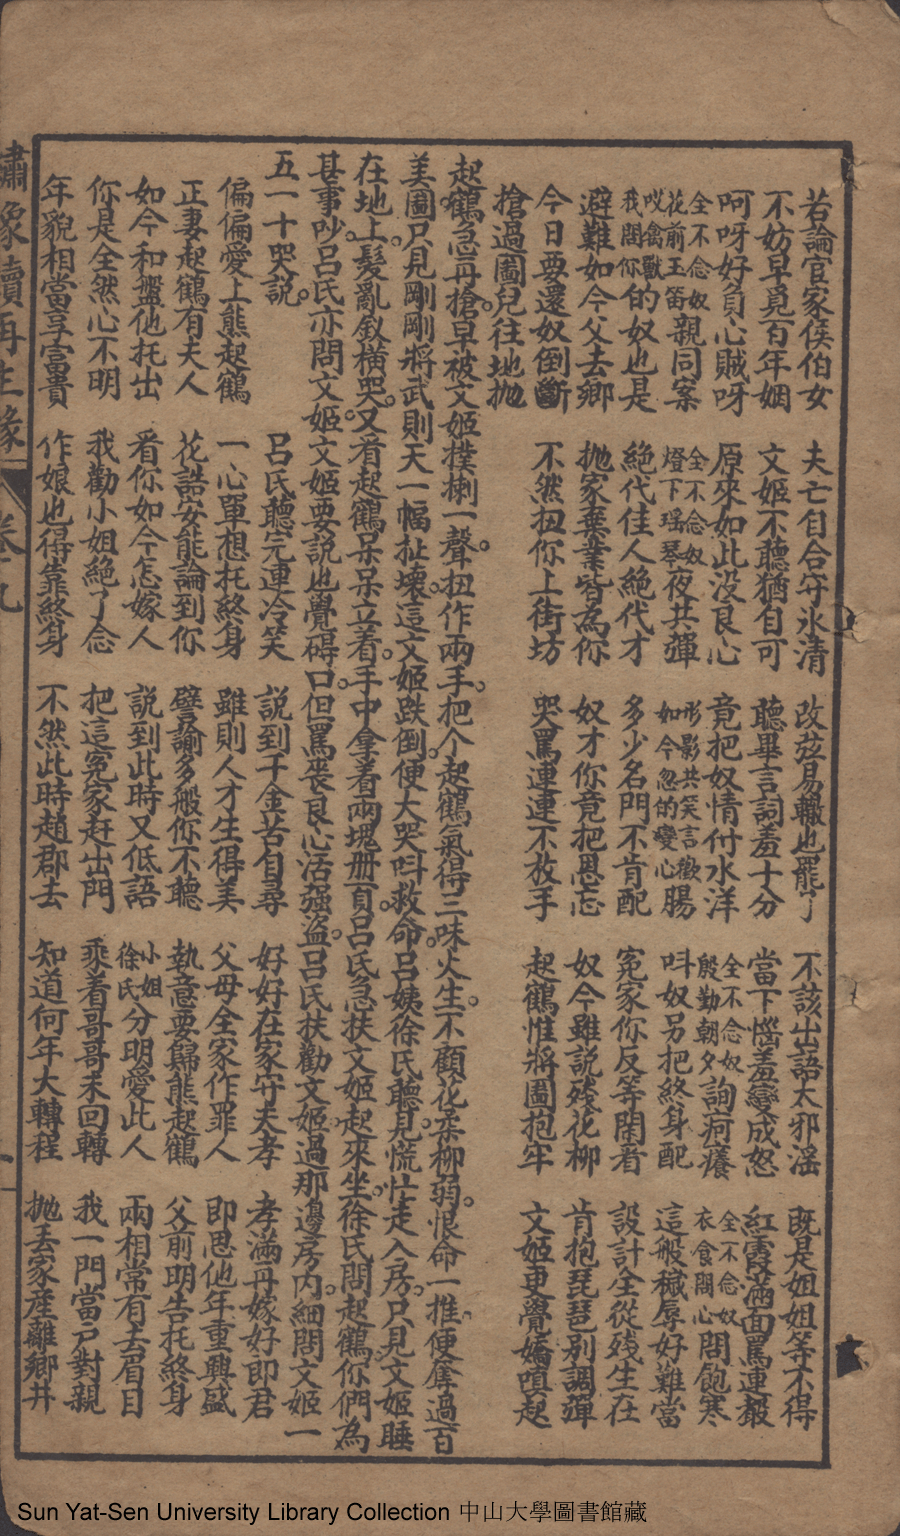 若論官家侯伯女　夫亡自合守氷清　改弦易轍也罷了　不該出語太邪滛　既是姐姐等不得
不妨早覓百年姻　文姬不聽猶自可　聽畢言詞羞十分　當下惱羞變成怒　紅霞滿面罵連聲
呵呀好負心賊呀　原來如此没良心　竟把奴情付水洋　全不念奴殷勤朝夕詢疴癢　全不念奴衣食関心問飽寒
全不念奴花前玉笛親同案　全不念奴燈下瑶琴夜共彈　形影共笑言歡如今忽的變心腸　呌奴另把終身配　這般穢辱好難當
哎禽獸我閤你的奴也是　絶代佳人絶代才　多少名門不肯配　寃家你反等閑看　設計全從殘生在
避難如今父去鄉　抛家棄業皆為你　奴才你竟把恩忘　奴今雖説殘花柳　肯抱琵琶别調彈
今日要還奴倒斷　不然扭你上街坊　哭罵連連不放手　起鶴惟將圖抱牢　文姬更覺嬌嗔起
搶過圖兒往地抛
起鶴急再搶。早被文姬撲喇一聲。扭作兩手。把个起鶴氣得三味火生。不顧花柔柳弱。恨命一推。便奪過百
美圖。只見剛剛將武則天一幅扯壞。這文姬跌倒。便大哭呌救命。吕姨徐氏聽見。慌忙走入房。只見文姬睡
在地上。髮亂釵横哭。又看起鶴呆呆立着。手中拿着兩塊册頁。吕氏急扶文姬起來坐。徐氏問起鶴。你們為
甚事吵。吕氏亦問文姬。文姬要説也覺碍口。但罵喪良心活强盗。吕氏扶勸文姬。過那邊房内。細問文姬一
五一十哭説。
偏偏愛上熊起鶴　吕氏聽完連冷笑　説到千金苦自尋　好好在家守夫孝　孝滿再嫁好郎君
正妻起鶴有夫人　一心單想托終身　雖則人才生得美　父母全家作罪人　即思他年重興盛
如今和盤他托出　花誥安能論到你　譬諭多般你不聽　執意要歸熊起鶴　父前明告托終身
你是全然心不明　看你如今怎嫁人　説到此時又低語　小姐徐氏分明愛此人　兩相常有去眉目
年貌相當享富貴　我勸小姐絶了念　把這寃家赶出門　乘着哥哥未回轉　我一門當戸對親
作娘也得靠終身　不然此時趙郡去　知道何年大轉程　抛丢家産離鄉井
繡像續再生緣　卷十九
Sun Yat-Sen University Library Collection 中山大學圖書館藏